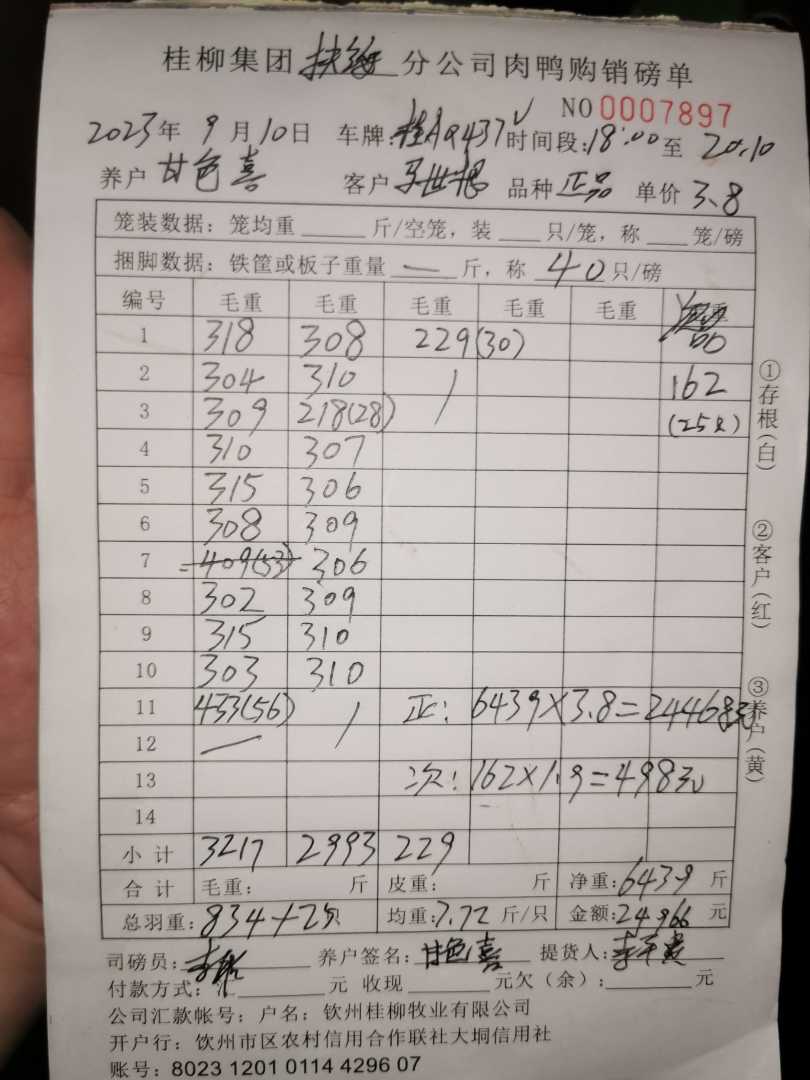 桂柳集团扶绥分公司肉鸭购销磅单
NO 0007897
2023年 9月10日 车牌:桂AQ437V 时间段:18:00至 20:10
养户 甘色喜 客户 品种 正品 单价 3.8
笼装数据: 笼均重 ____ 斤/空笼, 装 ____ 只/笼, 称 ____ 笼/磅
捆脚数据: 铁筐或板子重量 — 斤, 称 40 只/磅
编号 毛重 毛重 毛重 毛重 毛重 重
1 318 308 229(30)
2 304 310 / 162
3 309 218(28) (25只)
4 310 307
5 315 306
6 308 309
7 409(53) 306
8 302 309
9 315 310
10 303 310
11 433(56) / 正: 6439×3.8=24468元
12 —
13 次: 162×1.9=498元
14
小计 3217 2993 229
合计 毛重: 斤 皮重: 斤 净重: 6439 斤
总羽重: 834+25只 均重: 7.72 斤/只 金额: 24966 元
司磅员: 养户签名: 甘色喜 提货人:
付款方式: 汇____元 收现____元欠(余):____元
公司汇款帐号: 户名: 钦州桂柳牧业有限公司
开户行: 钦州市区农村信用合作联社大垌信用社
账号: 8023 1201 0114 4296 07
①存根(白)
②客户(红)
③养户(黄)